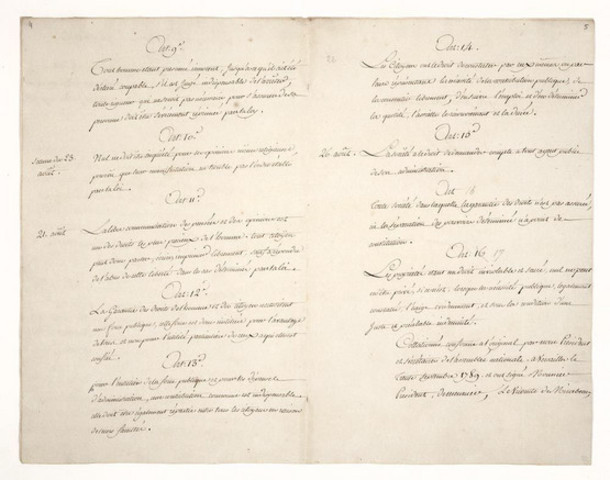 4
Art: 9e.
Tout homme étant présumé innocent, jusqu'à ce qu'il ait été
déclaré coupable, s'il est jugé indispensable de l'arrêter,
toute rigueur qui ne serait pas nécessaire pour s'assurer de sa
personne doit être sévèrement réprimée par la loy.
Art: 10e.
Séance du 23.
août.
Nul ne doit être inquiété pour ses opinions, mêmes religieuses
pourvu que leur manifestation ne trouble pas l'ordre établi
par la loi.
Art: 11e.
21. août
La libre communication des pensées et des opinions est
un des droits les plus précieux de l'homme: tout citoyen
peut donc parler, écrire, imprimer librement, sauf à répondre
de l'abus de cette liberté dans les cas déterminés par la loi.
Art: 12e.
La Garantie des droits de l'homme et du citoyen nécessitent
une force publique, cette force est donc instituée pour l'avantage
de tous, et non pour l'utilité particulière de ceux à qui elle est
confiée.
Art: 13e.
pour l'entretien de la force publique, et pour les dépenses
d'administration, une contribution commune est indispensable,
elle doit être également répartie entre tous les citoyens en raison
de leurs facultés.
5
Art: 14.
Les Citoyens ont le droit de constater par eux mêmes ou par
leurs représentants la nécessité de la contribution publique, de
la consentir librement, d'en suivre l'emploi et d'en déterminer
la quotité, l'assiette, le recouvrement et la durée.
Art: 15e
26 août.
La société a le droit de demander compte à tout agent public
de son administration.
Art 16
Toute société dans laquelle la garantie des droits n'est pas assurée,
ni la séparation des pouvoirs déterminée n'a point de
constitution.
Art: 16 17
Les propriétés étant un droit inviolable et sacré, nul ne peut
en être privé, si ce n'est lorsque la nécessité publique, légalement
constatée, l'exige évidemment, et sous la condition d'une
juste et préalable indemnité.
Collationné conforme à l'original par nous Président
et secrétaires de l'assemblée nationale. à Versailles le
1789. et ont signé
Président,